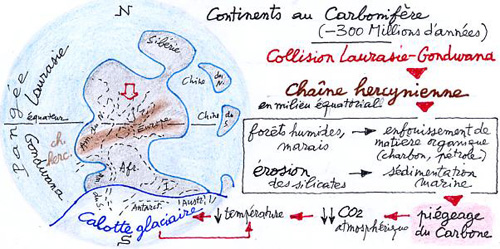 Continents au Carbonifère
(-300 Millions d'années)
Collision Laurasie-Gondwana
Chaîne hercynienne
en milieu équatorial
forêt humides,
marais
enfouissement de
matière organique
(charbon, pétrole)
érosion
des silicates
sédimentation
marine
piégeage
du Carbone
CO2
atmosphérique
température
N
Sibérie
Chine
du N.
Chine
du S.
Pangée
Laurasie
équateur
Gondwana
ch.
herc.
Am. du N.
Europe
Afr.
Am.
du S.
Antarct.
Austr.
Calotte glaciaire
S